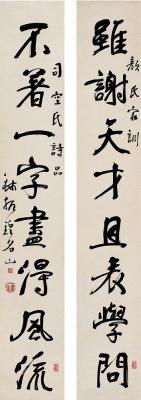 雖謝天才且表學問
顏氏家訓
不著一字盡得風流
司空氏詩品
錢振鍠名山